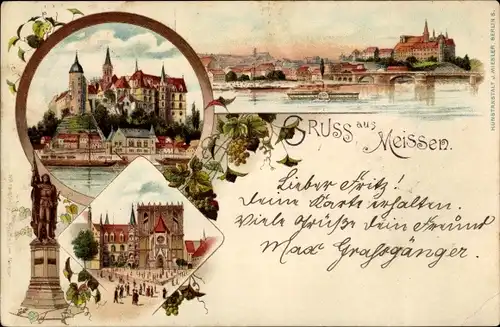 KUNSTANSTALT J. MIESLER, BERLIN S.
GRUSS aus
MEISSEN.
Lieber Fritz!
Deine Karte erhalten.
Viele Grüße dein Freund
Max Graßgänger